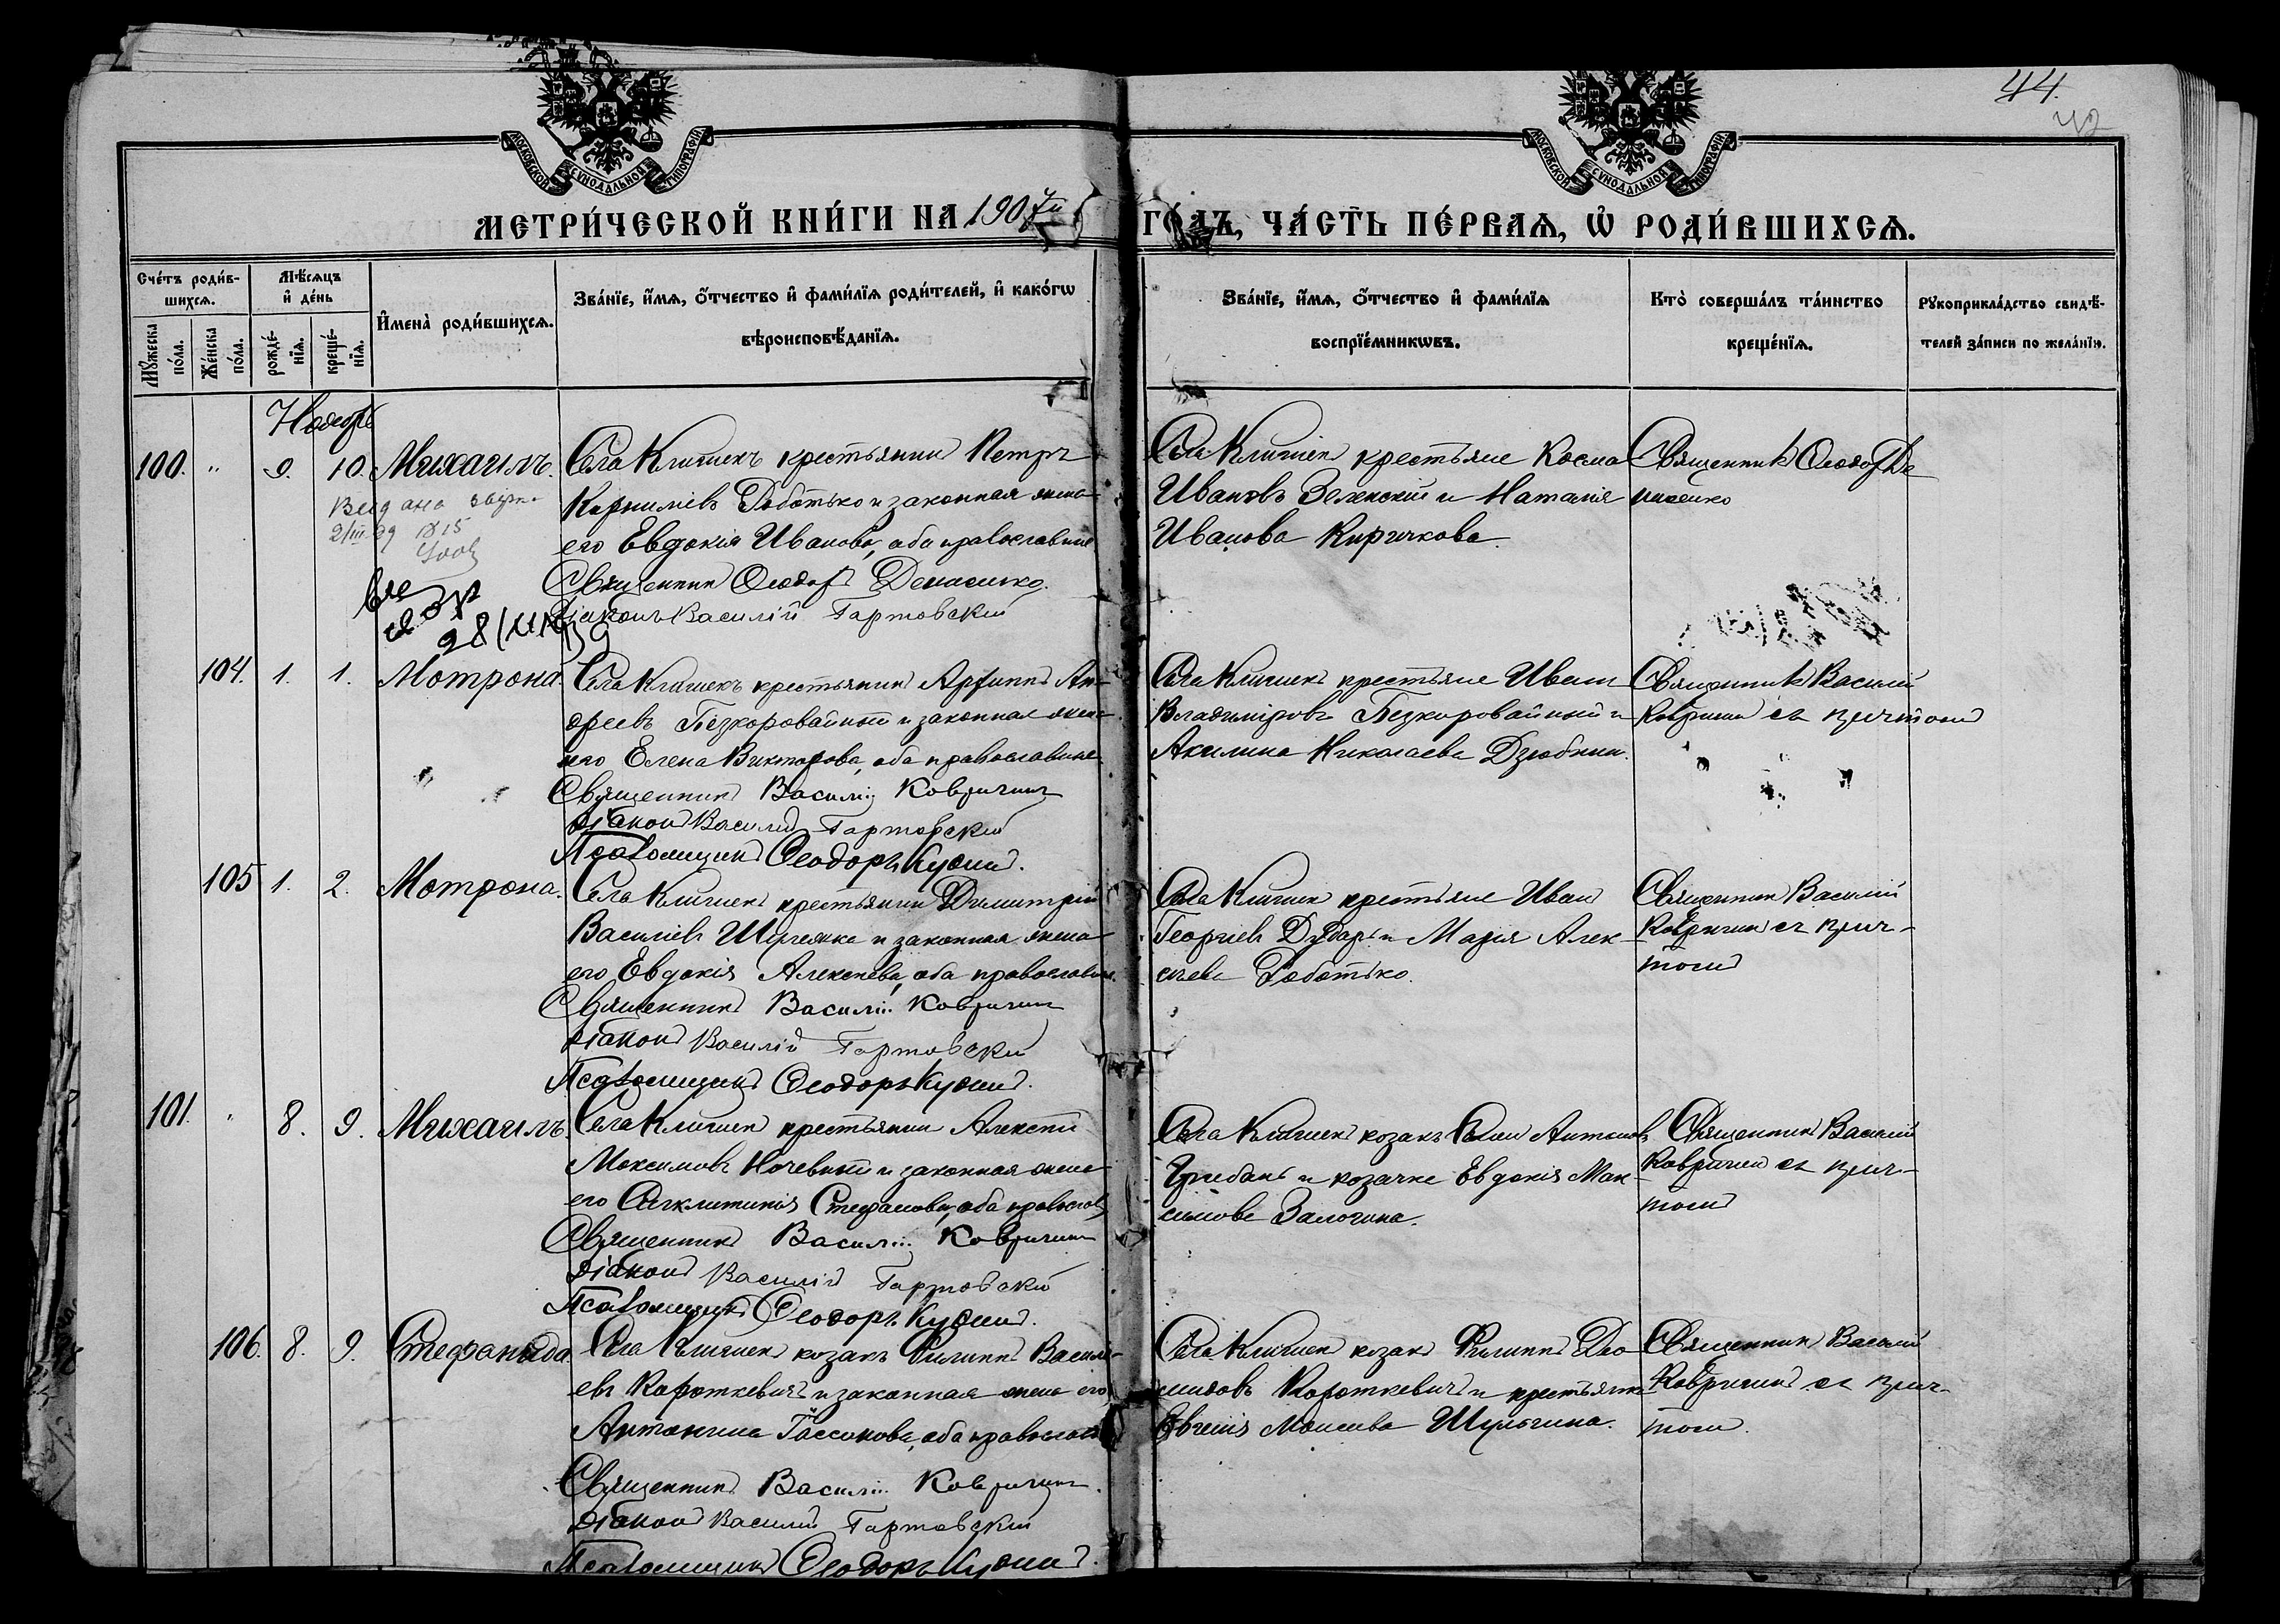 44.
42
МОСКОВСКОЙ СѴНОДАЛЬНОЙ ТИПОГРАФІИ
МОСКОВСКОЙ СѴНОДАЛЬНОЙ ТИПОГРАФІИ
МЕТРИ́ЧЕСКОЙ КНИ́ГИ НА 1907й ГО́ДЪ, ЧА́СТЬ ПЕ́РВАѦ, Ѽ РОДИ́ВШИХСѦ.
Сче́тъ роди́в-
шихсѧ.
Мꙋжеска по́ла.
Же́нска по́ла.
Мѣ́сѧцъ
и҆ де́нь
рожде́-
нїѧ.
креще́-
нїѧ.
И҆мена̀ роди́вшихсѧ.
Зва́нїе, и҆́мѧ, ѻ҆́тчество и҆ фами́лїѧ роди́телей, и҆ како́гѡ
вѣроисповѣ́данїѧ.
Зва́нїе, и҆́мѧ, ѻ҆́тчество и҆ фами́лїѧ
воспрїе́мникѡвъ.
Кто̀ соверша́лъ та́инство
креще́нїѧ.
Рꙋкоприкла́дство свидѣ́-
телей за́писи по жела́нїю.
Ноябрь
100. " 9. 10. Михаилъ.
Села Клишекъ крестьянинъ Петръ
Корниліевъ Роботько и законная жена
его Евдокія Иванова, оба православные
Священникъ Ѳеодоръ Денисенко.
Діаконъ Василій Гартовскій
Села Клишекъ крестьяне Косма
Ивановъ Зеленскій и Наталія
Иванова Киричкова.
Священникъ Ѳеодоръ Де
нисенко
Видано
2/III 29
28/XII 39
104. 1. 1. Мотрона
Села Клишекъ крестьянинъ Архиппъ Ан-
дреевъ Безкоровайный и законная жена
его Елена Викторова, оба православные
Священникъ Василій Ковричинъ
Діаконъ Василій Гартовскій
Псаломщикъ Ѳеодоръ Кудинъ.
Села Клишекъ крестьяне Иванъ
Владиміровъ Безкоровайный и
Акилина Николаева Дзюбина.
Священникъ Василій
Ковричинъ съ причтомъ
105 1. 2. Мотрона.
Села Клишекъ крестьянинъ Димитрій
Василіевъ Шульжка и законная жена
его Евдокія Алексіева, оба православные.
Священникъ Василій Ковричинъ
Діаконъ Василій Гартовскій
Псаломщикъ Ѳеодоръ Кудинъ.
Села Клишекъ крестьяне Иванъ
Георгіевъ Дударь и Марія Алек-
сіева Роботько.
Священникъ Василій
Ковричинъ съ прич-
томъ
101. " 8. 9. Михаилъ.
Села Клишекъ крестьянинъ Алексій
Максимовъ Ночевный и законная жена
его Сигклитикія Стефанова, оба православ
Священникъ Василій Ковричинъ
Діаконъ Василій Гартовскій
Псаломщикъ Ѳеодоръ Кудинъ.
Села Клишекъ козакъ Антоновъ
Грибанъ и козачка Евдокія Мак-
симова Залогина.
Священникъ Василій
Ковричинъ съ прич-
томъ
106. 8. 9. Стефанида.
Села Клишекъ козакъ Филиппъ Василі-
евъ Короткевичъ и законная жена его
Антонина Іассонова, оба православ
Священникъ Василій Ковричинъ.
Діаконъ Василій Гартовскій
Псаломщикъ Ѳеодоръ Кудинъ.
Села Клишекъ козакъ Филиппъ Дио
мидовъ Короткевичъ и крестьянка
Евгенія Моисеева Шульгина.
Священникъ Василій
Ковричинъ съ прич-
томъ.